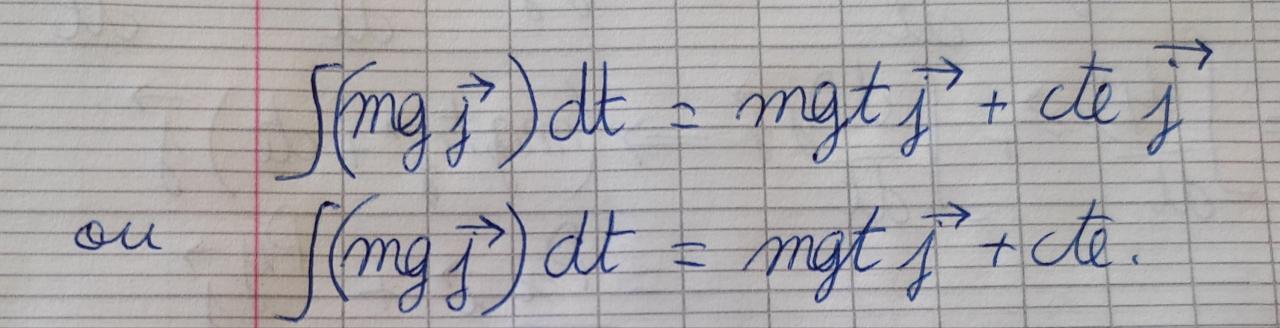 ∫(mg j⃗) dt = mgt j⃗ + cte j⃗
ou ∫(mg j⃗) dt = mgt j⃗ + cte.